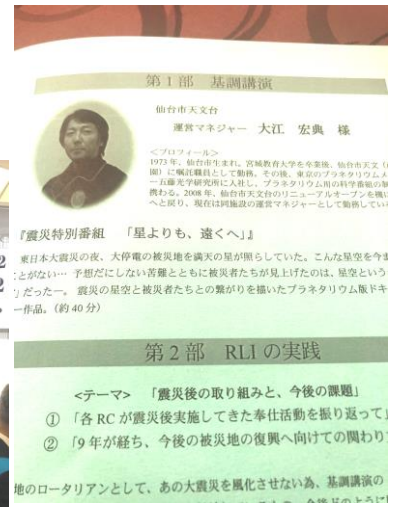 第1部 基調講演
仙台市天文台
運営マネジャー 大江 宏典 様
<プロフィール>
1973年、仙台市生まれ。宮城教育大学を卒業後、仙台市天文
園）に嘱託職員として勤務。その後、東京のプラネタリウムメ
ー五藤光学研究所に入社し、プラネタリウム用の科学番組の制
携わる。2008年、仙台市天文台のリニューアルオープンを機に
へと戻り、現在は同施設の運営マネジャーとして勤務してい
『震災特別番組 「星よりも、遠くへ」』
東日本大震災の夜、大停電の被災地を満天の星が照らしていた。こんな星空を今ま
ことがない… 予想だにしない苦難とともに被災者たちが見上げたのは、星空という
」だった―。 震災の星空と被災者たちとの繋がりを描いたプラネタリウム版ドキ
ー作品。（約40分）
第2部 RLIの実践
<テーマ> 「震災後の取り組みと、今後の課題」
① 「各RCが震災後実施してきた奉仕活動を振り返って」
② 「9年が経ち、今後の被災地の復興へ向けての関わり
地のロータリアンとして、あの大震災を風化させない為、基調講演の